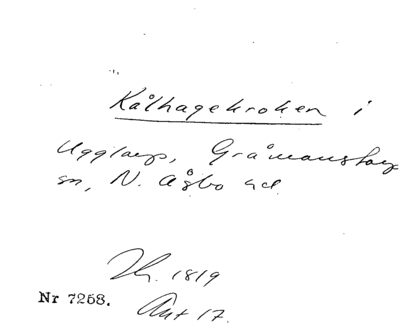 Kålhagekroken i
Ugglarp, Gråmanstorp
sn, N. Åsbo hd.
Th. 1819
Nr 7258. Ant 17.